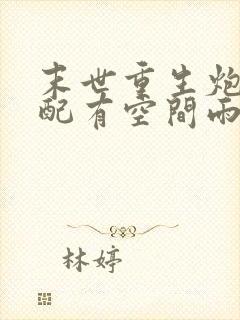 末世重生炮
配有空間兩
林婷